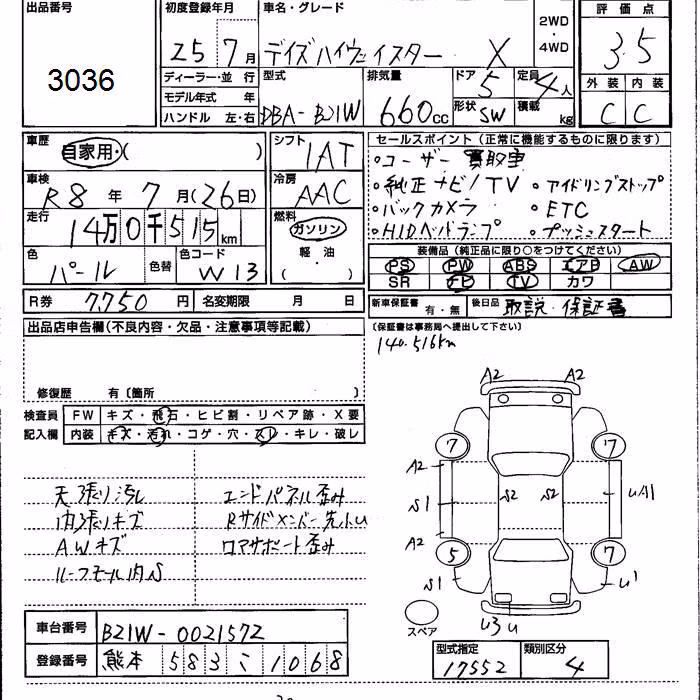 出品番号
3036
初度登録年月
25 7月
車名・グレード
デイズハイウェイスター X
2WD
・
4WD
評価点
3.5
ディーラー・並行
モデル年式 年
ハンドル 左・右
型式
DBA-B21W
排気量
660cc
ドア
5
形状
SW
定員
4人
積載
kg
外装 内装
C C
車歴
自家用・( )
車検
R8年 7月(26日)
走行
14万0千515km
色
パール
色替
色コード
W13
シフト
IAT
冷房
AAC
燃料
ガソリン
軽・油
( )
セールスポイント(正常に機能するものに限ります)
・ユーザー買取車
・純正ナビ/TV ・アイドリングストップ
・バックカメラ ・ETC
・HIDヘッドランプ ・プッシュスタート
装備品(純正品に限り○をつけてください)
PS PW ABS エアB AW
SR ナビ TV カワ
R券 7,750円 名変期限 月 日
新車保証書 有・無 後日品 取説・保証書
(保証書は事務局へ提出して下さい)
140,516km
出品店申告欄(不良内容・欠品・注意事項等記載)
修復歴 有〔箇所 〕
検査員
記入欄
FW キズ・飛石・ヒビ割・リペア跡・X要
内装 キズ・汚れ・コゲ・穴・スレ・キレ・破レ
天張り汚れ
内張りキズ
AWキズ
ルーフモール内S
エンドパネル歪み
Rサイドメンバー先トU
ロアサポート歪み
A2 A2
7 7
A2
S1 S2 S2 UA1
A2
5 7
S1 U1
U3 U
スペア
車台番号 B21W-0021572
登録番号 熊本 583 こ 1068
型式指定
17552
類別区分
4